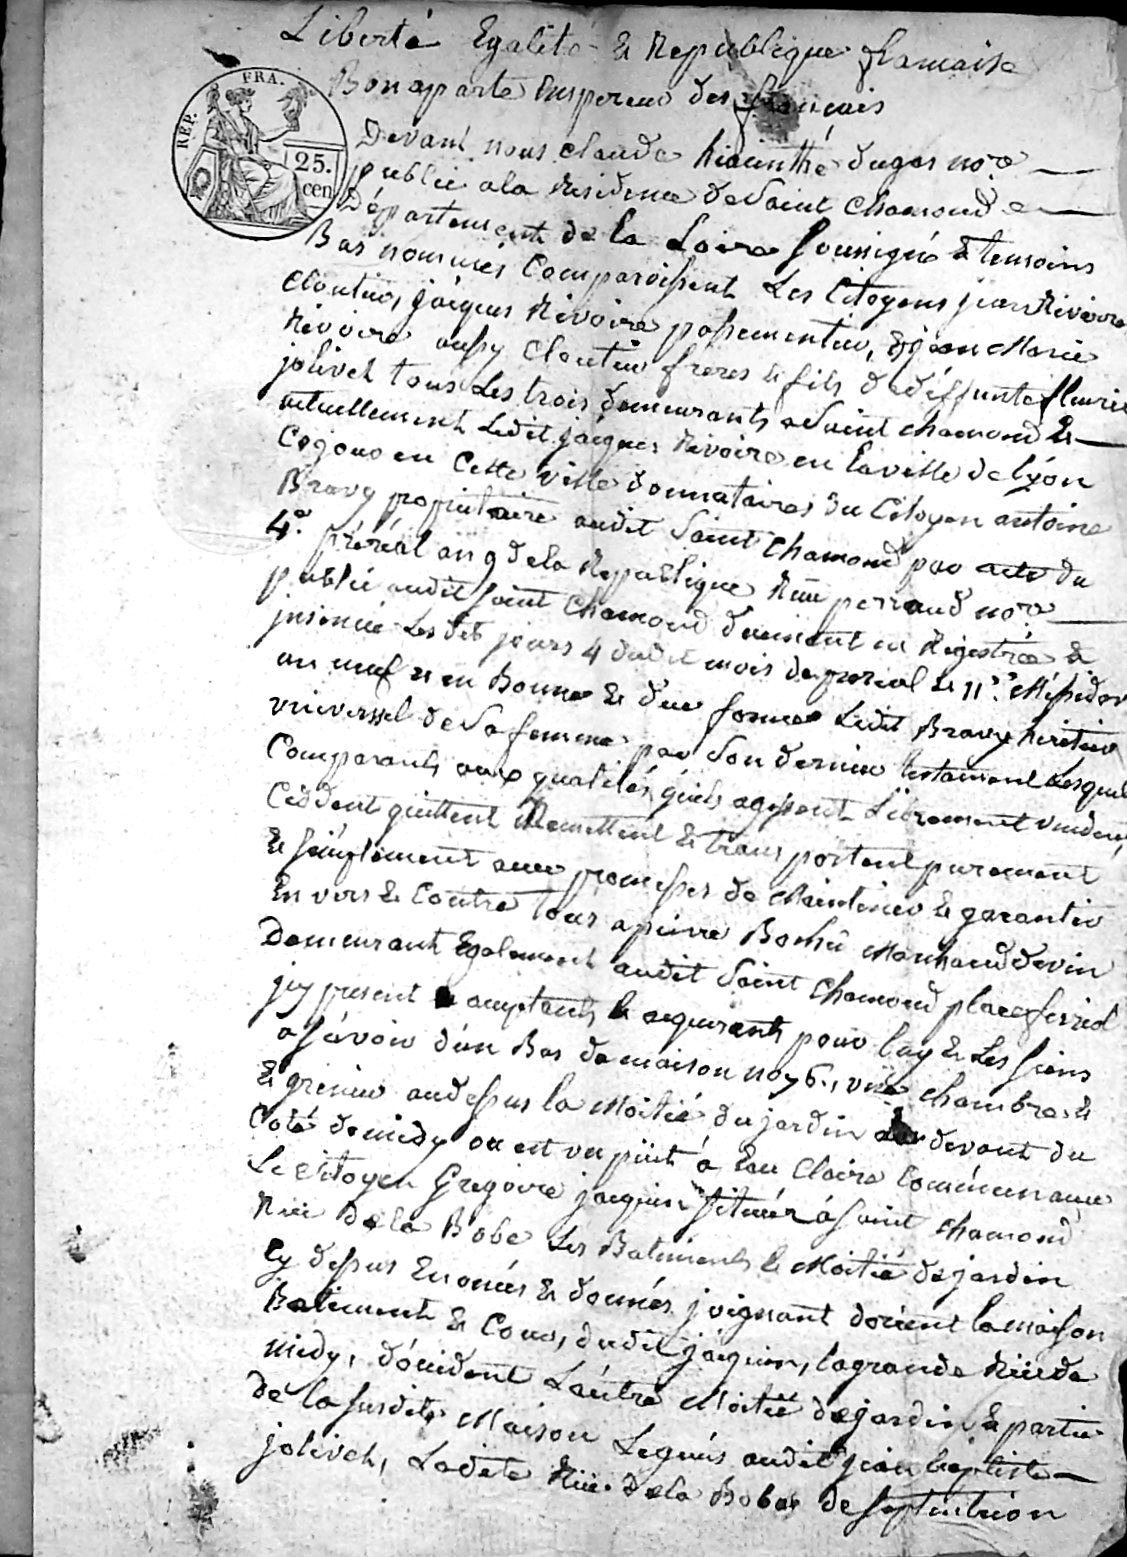 Liberté Egalité & Republique francaise
Bonaparte Empereur des français
REP. FRA.
25.
cen
Devant nous claude hiacinthe dugas nore
public a la Residence de Saint chamond
Département de la Loire Soussigné & temoins
Bas nommés Comparoissent Les Citoyens jean Rivoire
Cloutier, jacques Rivoire passementier, & jean Marie
Rivoire aussy Cloutier freres & fils de déffunte fleurie
jolivet tous Les trois demeurants a Saint chamond &
actuellement Ledit jacques Rivoire en la ville de lyon
Ce jour en Cette ville donnataires du Citoyen antoine
Bravy proprietaire audit Saint Chamond par acte du
4e préréal an 9 de la Republique Reçu perraud nore
public audit saint Chamond duement en Registrée &
jnsinué Les dits jours 4 dudit mois de prereal & 11e Messidor
an neuf en Bonne & due forme Ledit Bravy heritier
universsel de Sa femme par Son dernier testament Lesquels
Comparants aux qualités qu'ils agissent Librement vendent,
Cèddent quittent Remettent & transportent purement
& simplement avec promesses de Maintenir & garantir
En vers & Contre tous a pierre Marchand de vin
Demeurant Egalement audit Saint Chamond place
jcy present & acceptants & acquerants pour luy & Les siens
a sçavoir d'un Bas de maison no 76, une chambre &
& grenier au dessus la Moitié du jardin au devant du
Coté de midy ou est un puit à Eau Claire Commun avec
Le Citoyen Gregoire jacquin Situés à saint chamond
Rüe de la Bobe Les Batiments & Moitié de jardin
Cy dessus Enoncés & donnés joignant dorient la maison
Batiment & Cour, dudit jacquin, la grande Rüe de
midy, d'occident L'autre Moitié de jardin & partie
De la susdite Maison Legués audit jean baptiste
jolivet, Ladite Rüe de la Bobe de septentrion